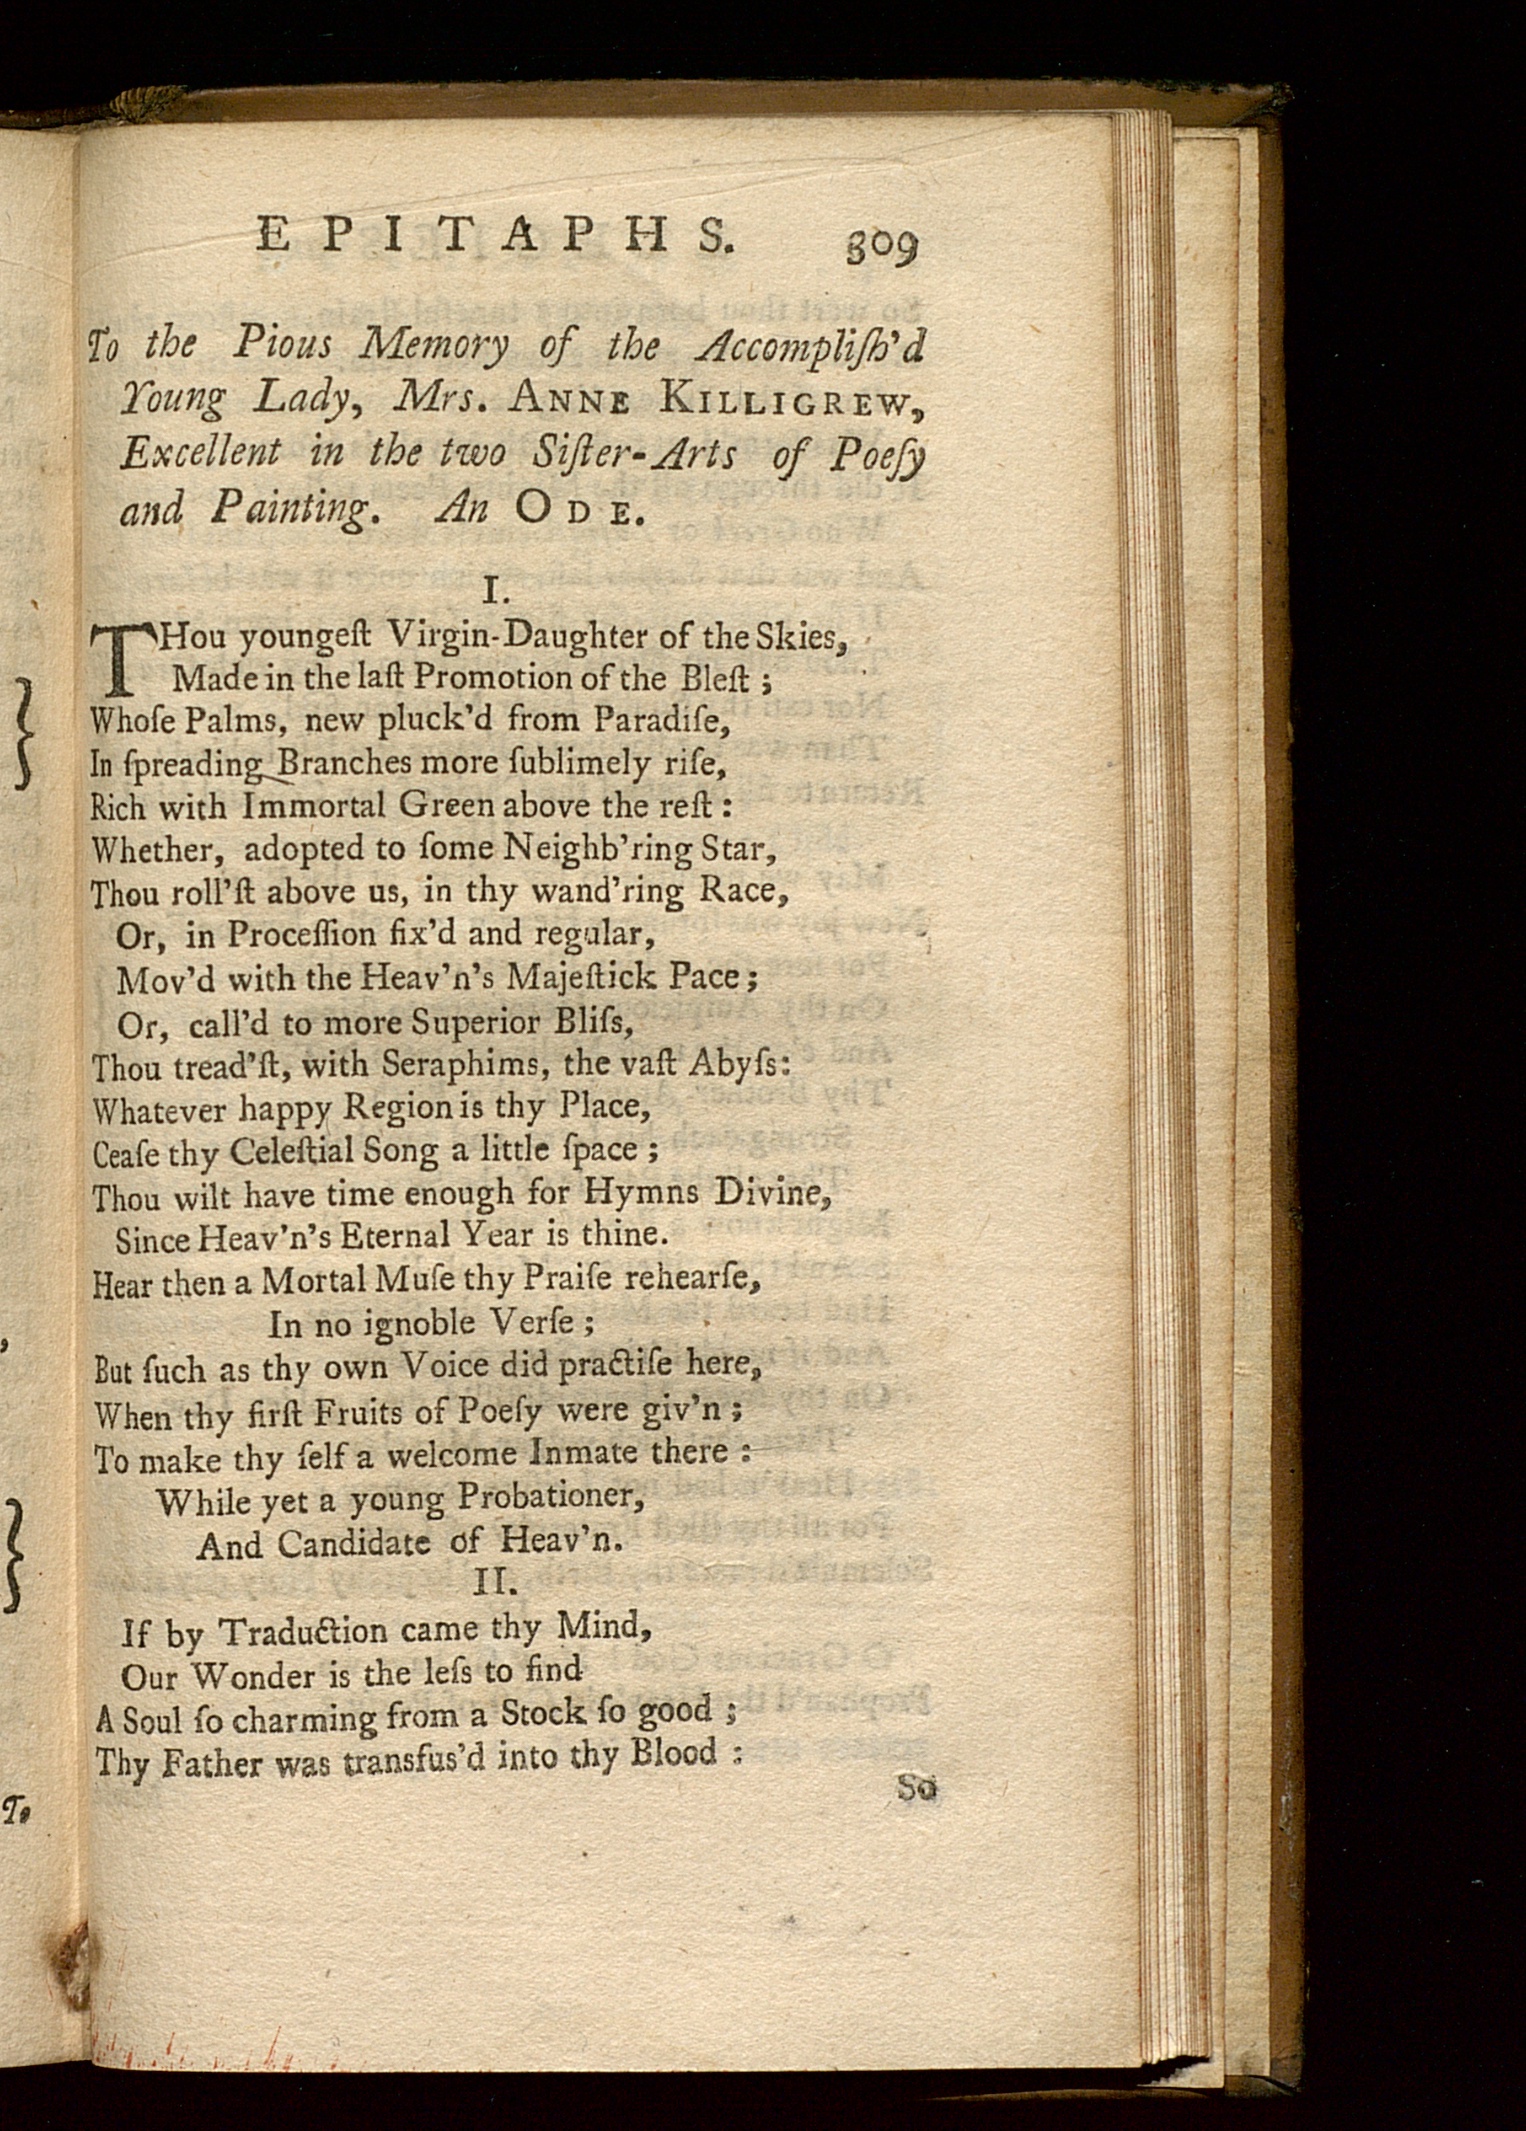 EPITAPHS. 309
To the Pious Memory of the Accompliſh'd
Young Lady, Mrs. ANNE KILLIGREW,
Excellent in the two Siſter-Arts of Poeſy
and Painting. An ODE.
I.
THou youngeſt Virgin-Daughter of the Skies,
Made in the laſt Promotion of the Bleſt;
Whoſe Palms, new pluck'd from Paradiſe,
In ſpreading Branches more ſublimely riſe,
Rich with Immortal Green above the reſt:
Whether, adopted to ſome Neighb'ring Star,
Thou roll'ſt above us, in thy wand'ring Race,
Or, in Proceſſion fix'd and regular,
Mov'd with the Heav'n's Majeſtick Pace;
Or, call'd to more Superior Bliſs,
Thou tread'ſt, with Seraphims, the vaſt Abyſs:
Whatever happy Region is thy Place,
Ceaſe thy Celeſtial Song a little ſpace;
Thou wilt have time enough for Hymns Divine,
Since Heav'n's Eternal Year is thine.
Hear then a Mortal Muſe thy Praiſe rehearſe,
In no ignoble Verſe;
But ſuch as thy own Voice did practiſe here,
When thy firſt Fruits of Poeſy were giv'n;
To make thy ſelf a welcome Inmate there:
While yet a young Probationer,
And Candidate of Heav'n.
II.
If by Traduction came thy Mind,
Our Wonder is the leſs to find
A Soul ſo charming from a Stock ſo good;
Thy Father was transfus'd into thy Blood:
So
To